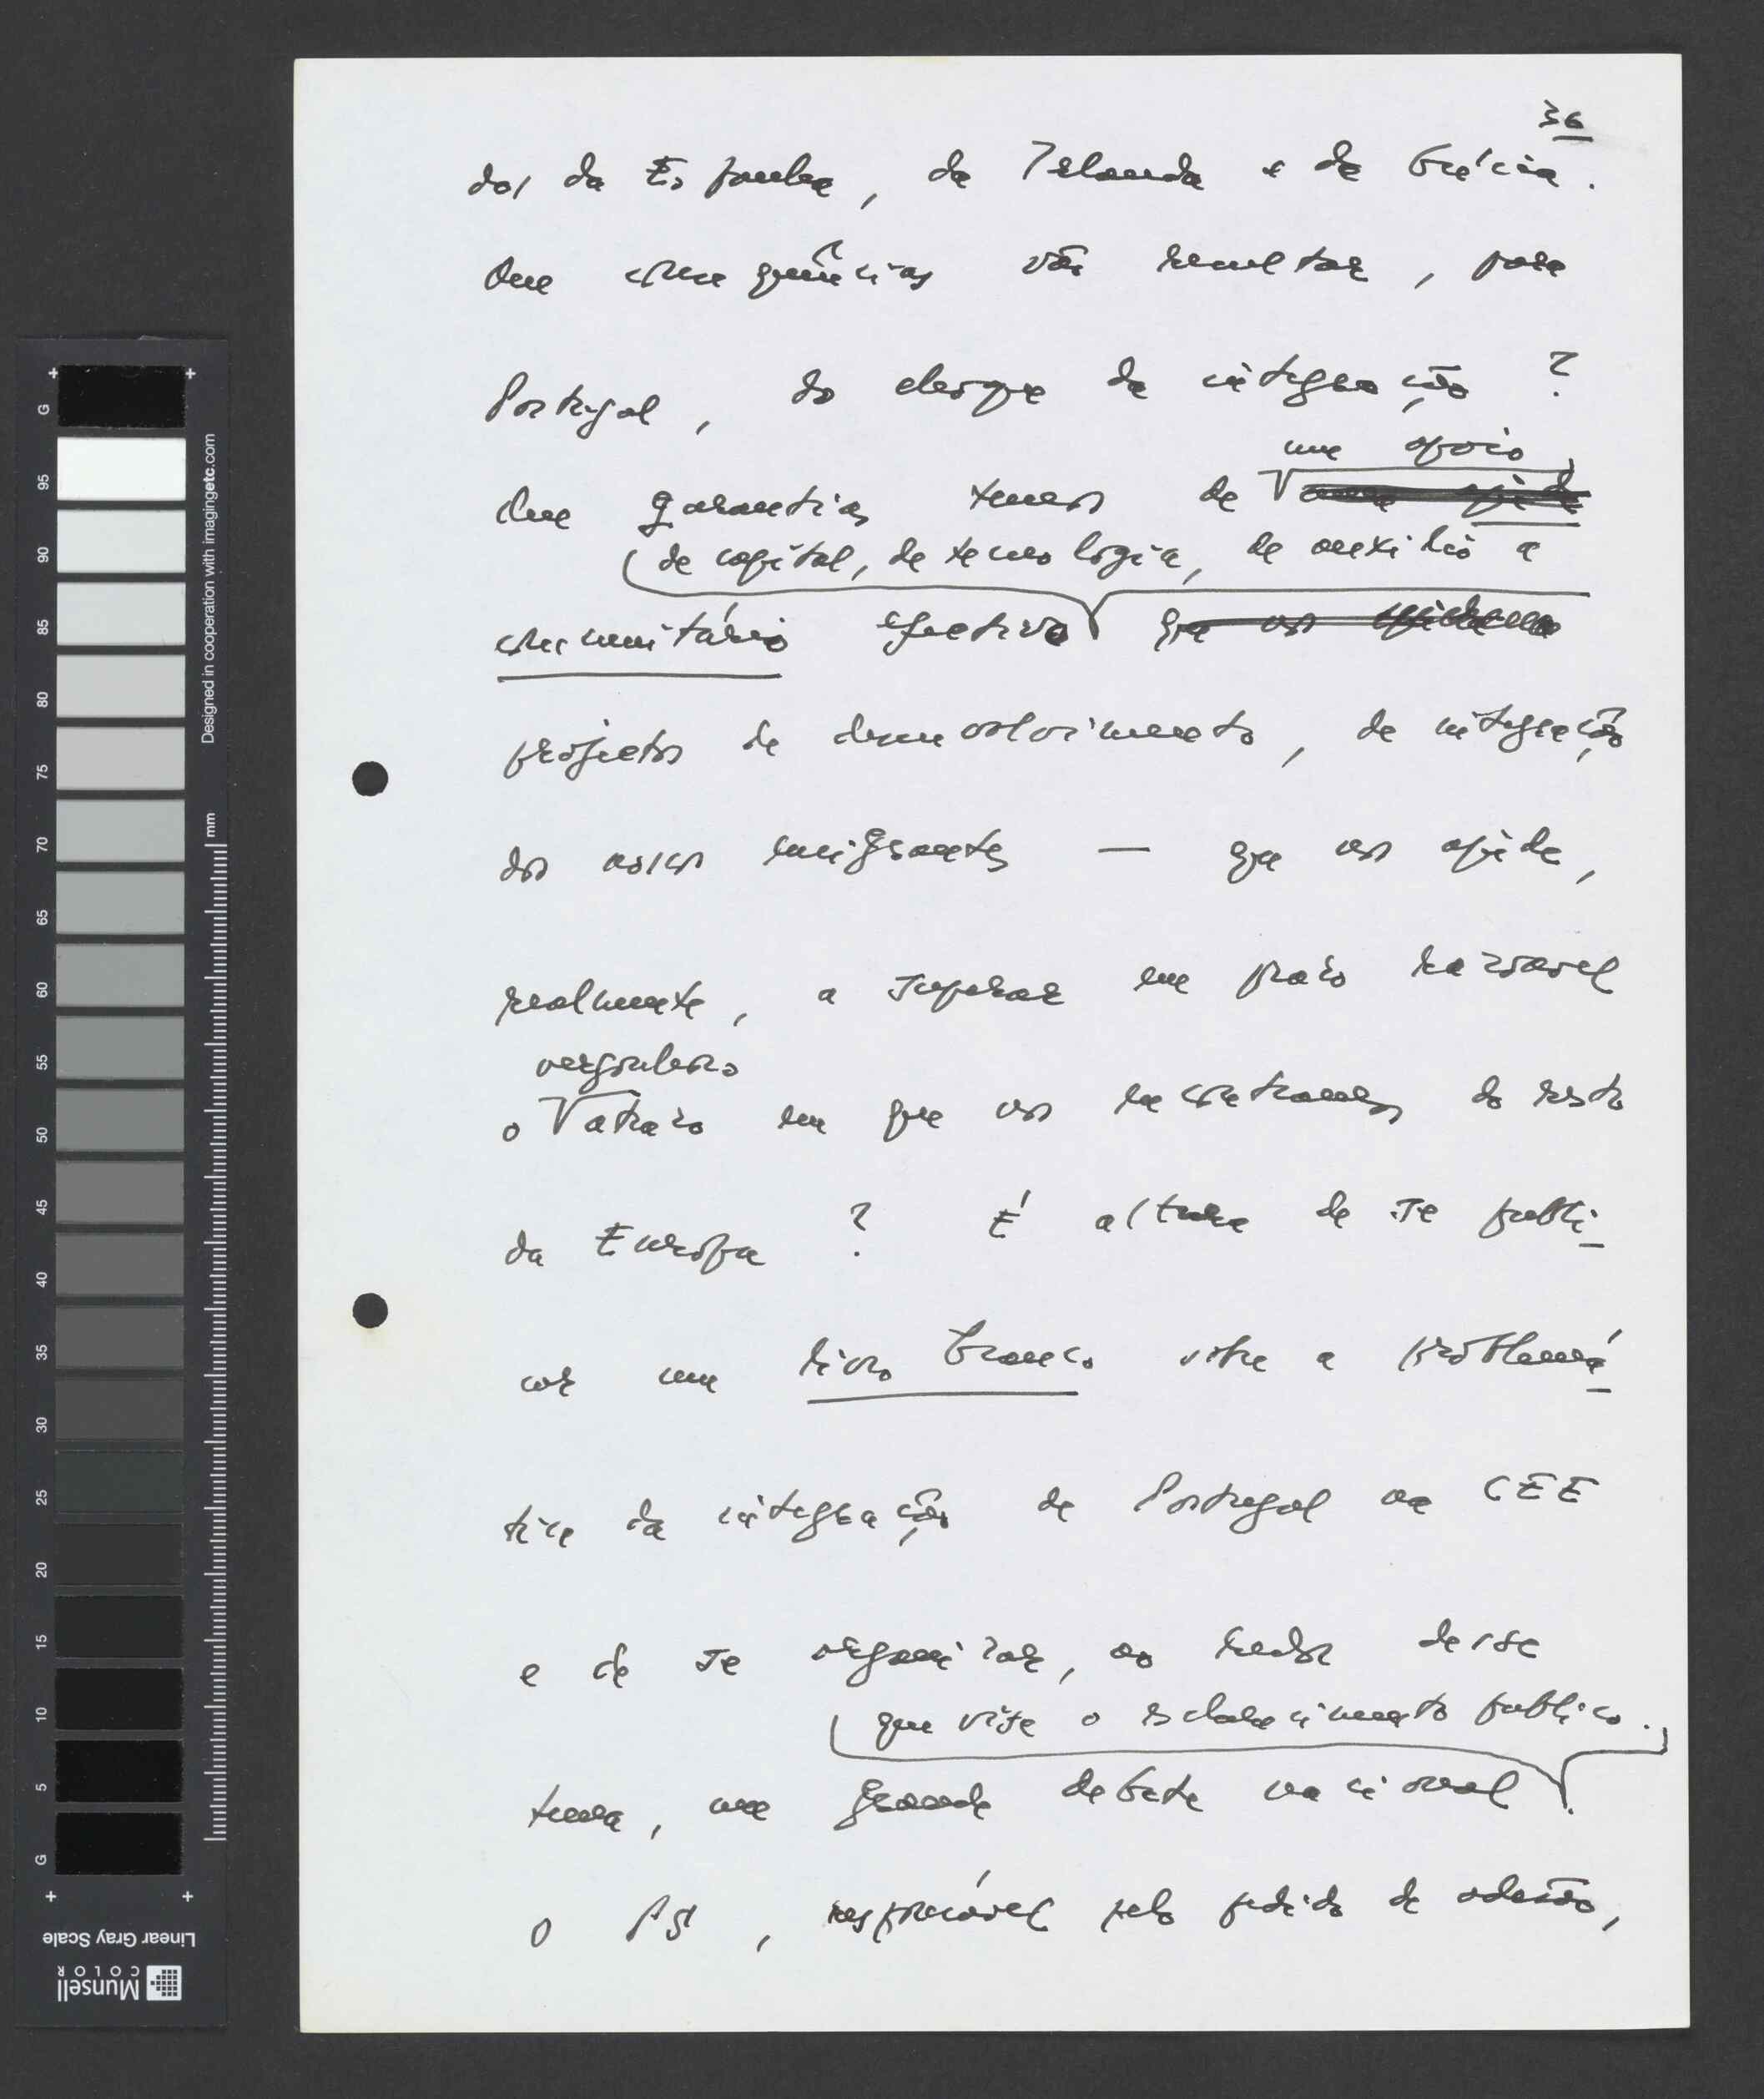 36
dos da Espanha, da Irlanda e da Grécia.
Que consequências vão resultar, para
Portugal, do choque da integração ?
um apoio
Que garantias temos de
de capital, de tecnologia, de auxílio a
comunitário efectivo que nos
projectos de desenvolvimento, de integração
dos nossos emigrantes — que nos ajude,
realmente, a superar em prazo razoável
vergonhoso
o atraso em que nos encontramos do resto
da Europa ? É altura de se publi-
car um livro branco sobre a problemá-
tica da integração de Portugal na CEE
e de se organizar, ao redor desse
que vise o esclarecimento público.
tema, um grande debate nacional.
O PS, responsável pelo pedido de adesão,
G 95 90 85 80 75 70 65 60 55 50 45 40 35 30 25 20 15 10 5 G
mm
Designed in cooperation with imagingetc.com
Linear Gray Scale
Munsell
COLOR